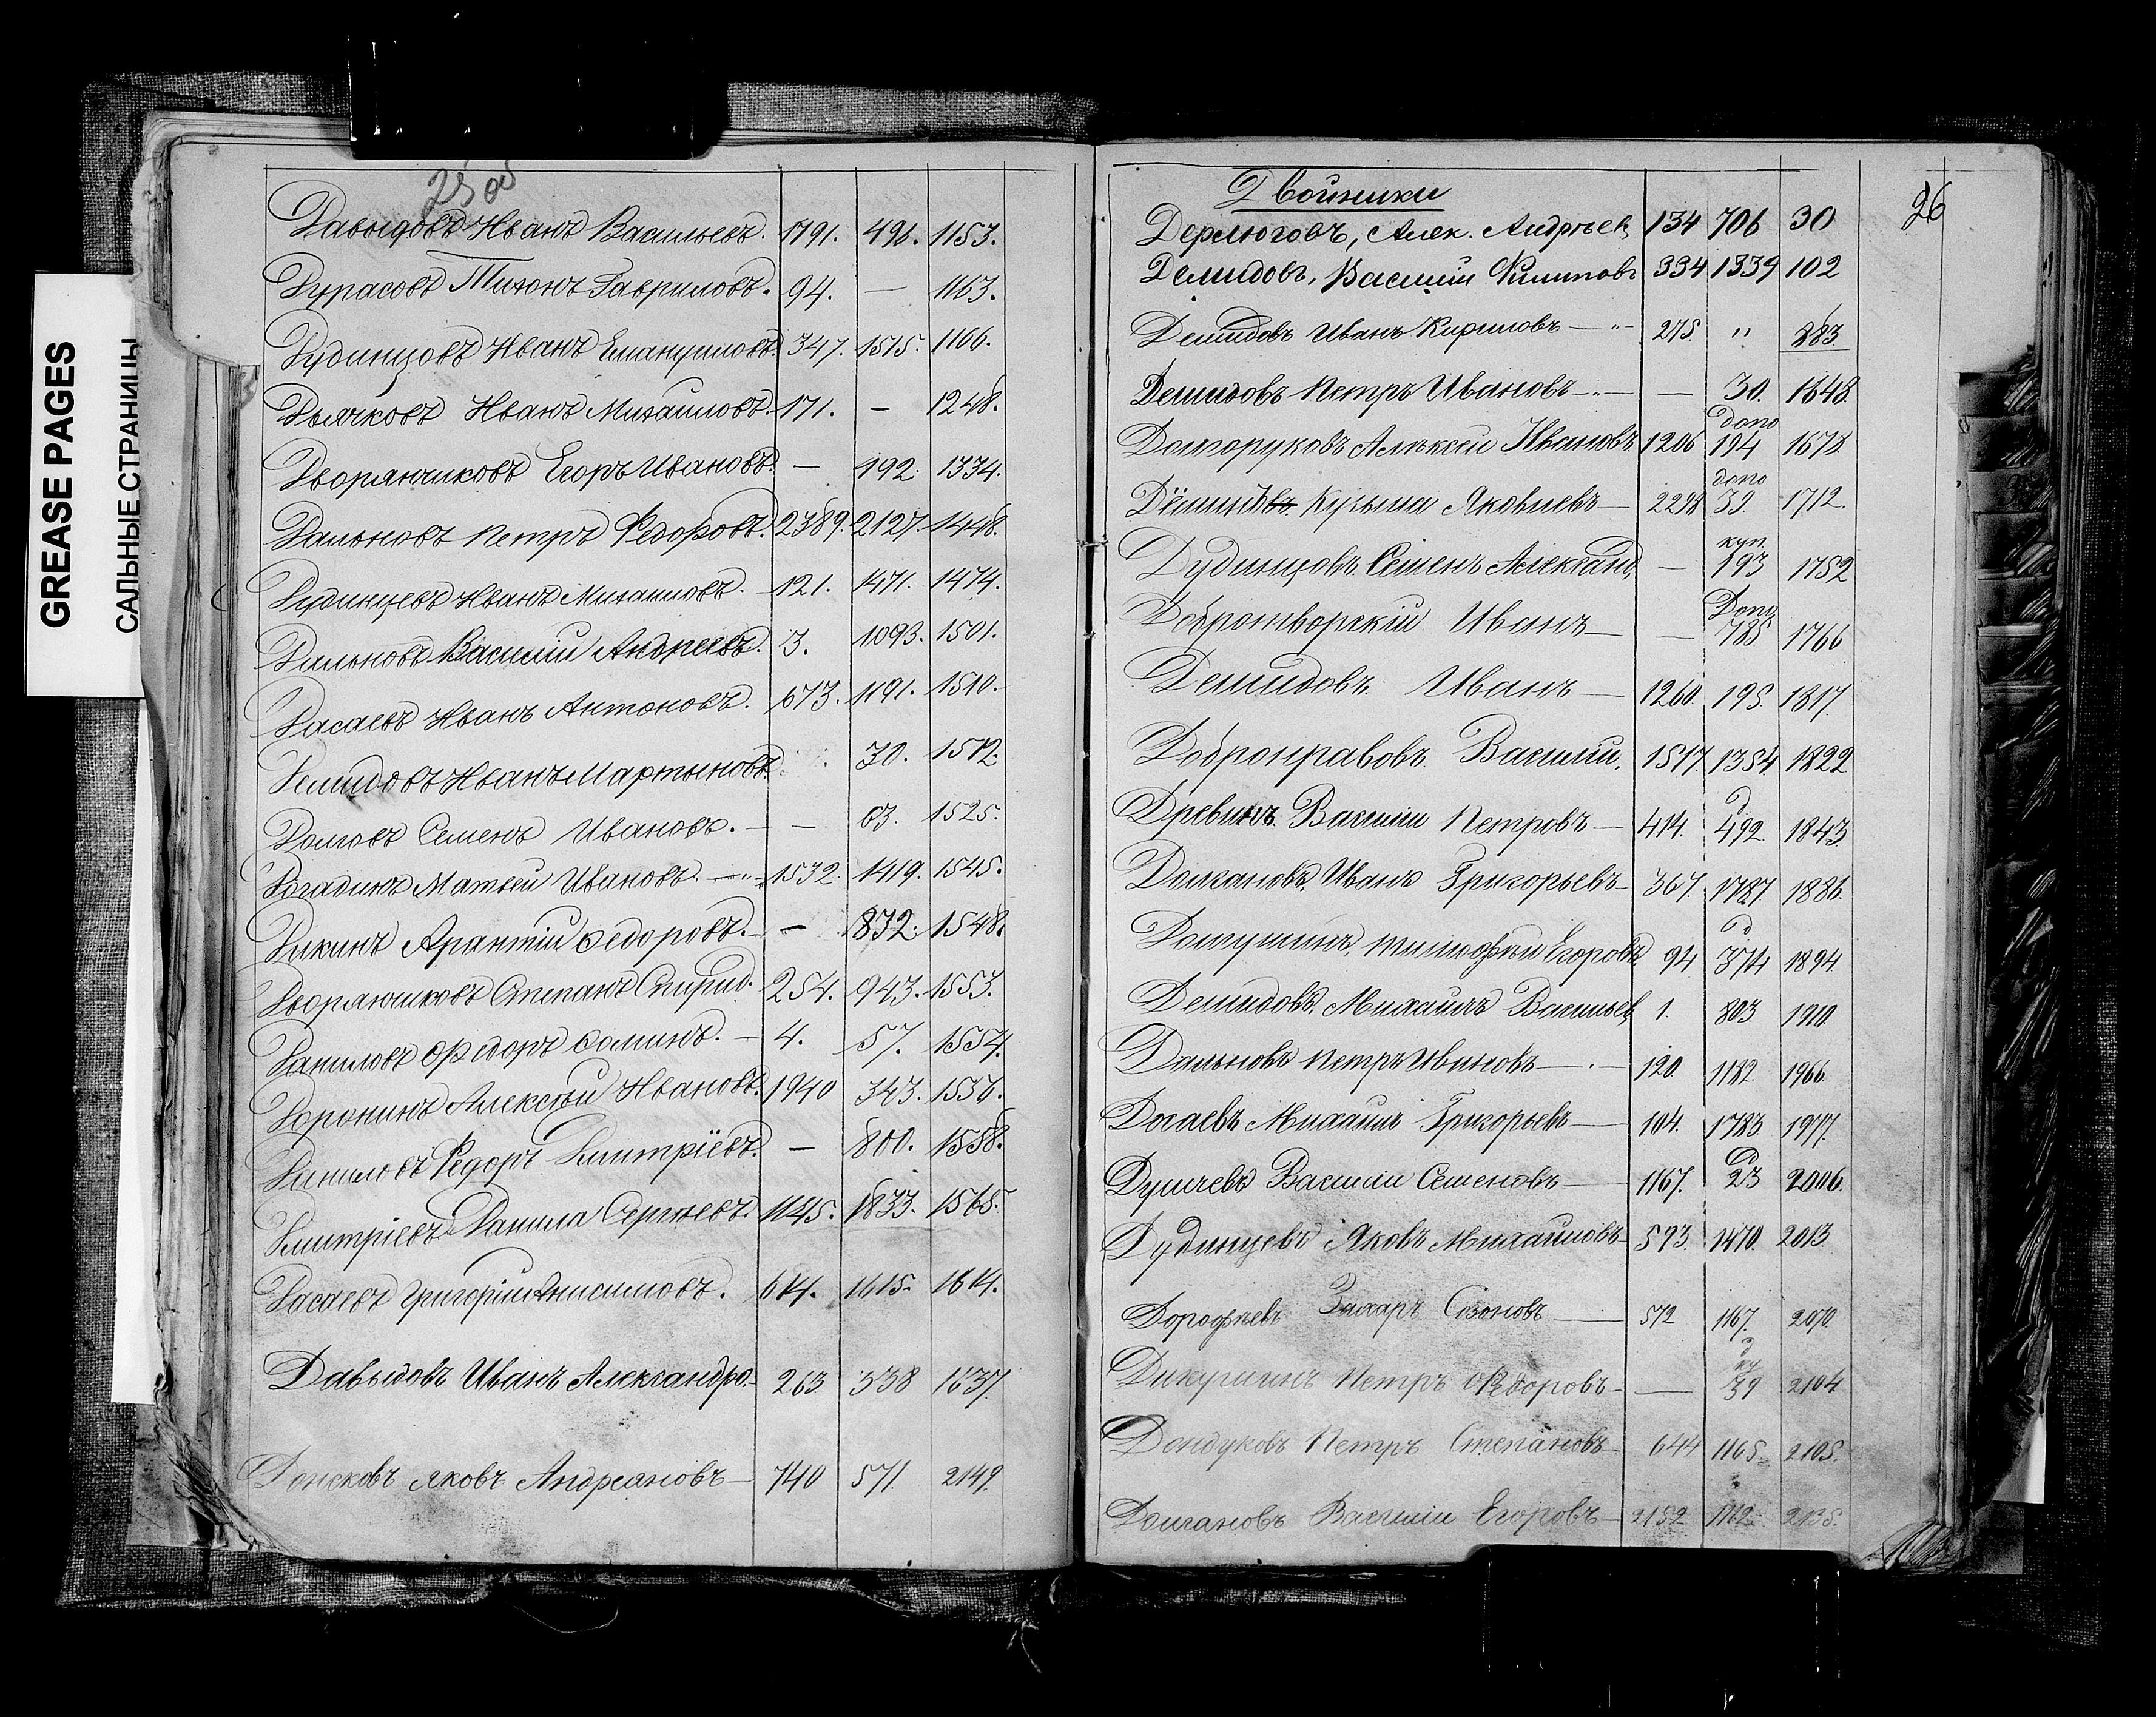 GREASE PAGES
САЛЬНЫЕ СТРАНИЦЫ
25 об
Давыдовъ Иванъ Васильевъ. 1791. 496. 1153.
Дурасовъ Тихонъ Гавриловъ. 94. — 1163.
Дудинцовъ Иванъ Емануиловъ. 347. 1515. 1166.
Дьячковъ Иванъ Михаиловъ. 171. — 1248.
Дворянчиковъ Егоръ Ивановъ. — 192. 1334.
Дальновъ Петръ Федоровъ. 2389. 2127. 1448.
Дудинцевъ Иванъ Михаиловъ. 121. 1471. 1474.
Дальновъ Василии Андреевъ. 3. 1093. 1501.
Дасаевъ Иванъ Антоновъ. 673. 1191. 1510.
Демидовъ Иванъ Мартыновъ. 30. 1512.
Долговъ Семенъ Ивановъ. — 63. 1525.
Догадинъ Матвеи Ивановъ. 1532. 1419. 1545.
Дикинъ Федоровъ. — 832. 1548.
Дворянчиковъ Степанъ Спирид. 254. 943. 1553.
Даниловъ Фёдоръ Фоминъ. — 4. 57. 1554.
Доронинъ Алексѣи Ивановъ. 1940 343. 1556.
Даниловъ Федоръ Дмитріевъ. — 800. 1558.
Дмитріевъ Данила Сергѣевъ. 1145. 1833. 1565.
Дасаевъ Григоріи Анисимовъ. 614. 1615. 1614.
Давыдовъ Иванъ Александро. 263 338 1637.
Донсковъ Яковъ Андреановъ — 740 571. 2149.
26
Двойники
Дерлюговъ, Алек. Андрѣев, 134 706 30
Демидовъ, Василіи Филиповъ 334 1339 102
Демидовъ Иванъ Кириловъ — 275. " 283
Демидовъ Петръ Ивановъ — — 30. 1648.
Допо
Долгоруковъ Алѣксеи Ивановъ 1206 194 1678.
допо
Дёмидовъ Кузьма Яковлевъ — 2298 39. 1712.
куп
Дудинцовъ Семенъ Александ, — 193 1752
Допо
Добротворскій Иванъ — — 785 1766
Демидовъ Иванъ — 1260. 195. 1817.
Добронравовъ Василии. 1517. 1354 1822
д
Древинъ Василии Петровъ — 414. 492. 1843.
Долгановъ Иванъ Григорьевъ — 367. 1787. 1886.
д
Тимофѣи Егоровъ 94 374 1894.
Демидовъ Михаилъ Васильев, 1. 803 1910
Дальновъ Петръ Ивановъ — 120. 1182. 1966.
Досаевъ Михаилъ Григорьевъ — 104. 1783. 1977.
д
Душчевъ Василии Семеновъ — 1167. 23 2006.
Дудинцевъ Яковъ Михаиловъ — 593. 1470. 2013.
Дорофѣевъ Захаръ Созоновъ — 572 1167. 2070.
д
ку
Дикушинъ Петръ Федоровъ — — 39 2104
Дондуковъ Петръ Степановъ — 644 1165. 2105.
Долгановъ Василии Егоровъ — 2152 1162. 2135.